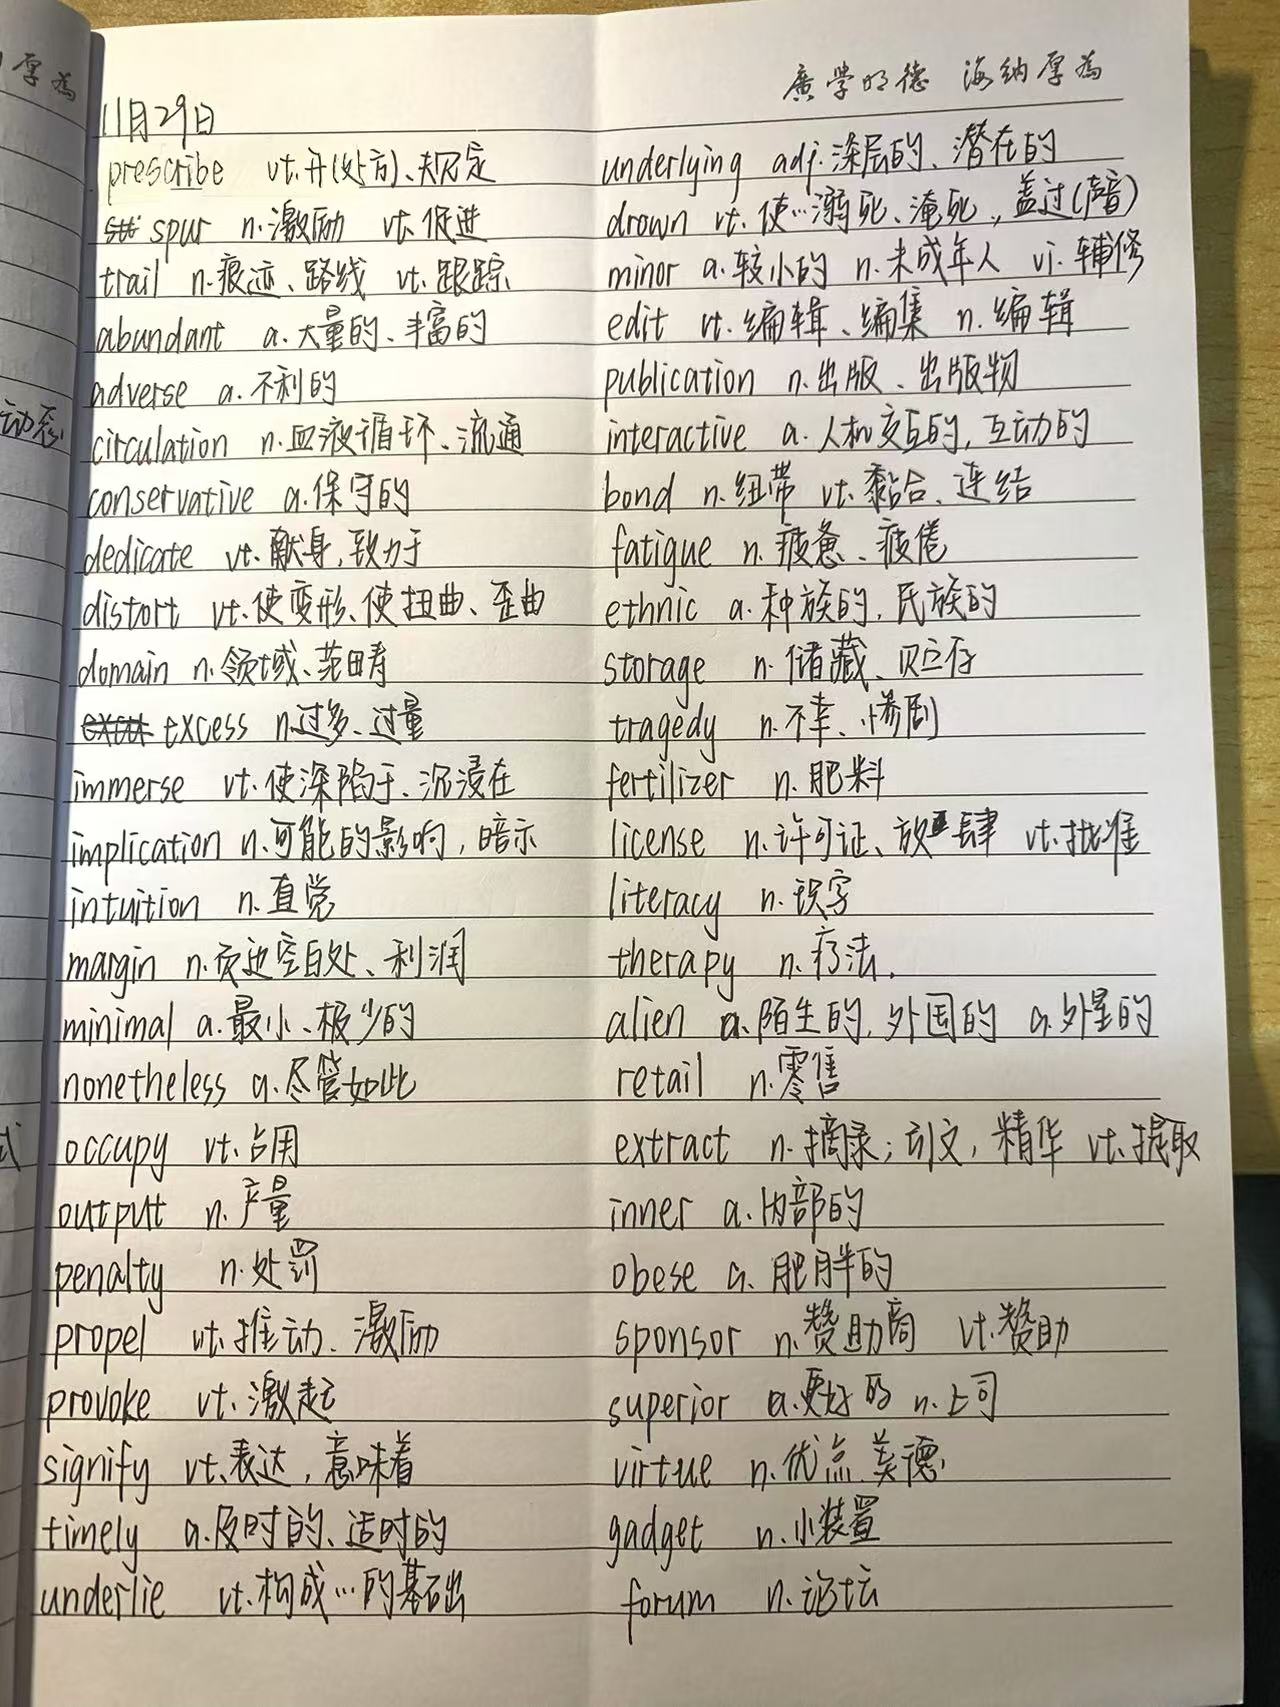 厚為
廣学明德 海纳厚為
11月29日
prescribe vt.开(处方)、规定
spur n.激励 vt.促进
trail n.痕迹、路线 vt.跟踪
abundant a.大量的、丰富的
adverse a.不利的
动态
circulation n.血液循环、流通
conservative a.保守的
dedicate vt.献身,致力于
distort vt.使变形、使扭曲、歪曲
domain n.领域、范畴
excess n.过多、过量
immerse vt.使深陷于、沉浸在
implication n.可能的影响,暗示
intuition n.直觉
margin n.页边空白处、利润
minimal a.最小、极少的
nonetheless a.尽管如此
式
occupy vt.占用
output n.产量
penalty n.处罚
propel vt.推动、激励
provoke vt.激起
signify vt.表达,意味着
timely a.及时的、适时的
underlie vt.构成…的基础
underlying adj.深层的、潜在的
drown vt.使…溺死、淹死,盖过(声音)
minor a.较小的 n.未成年人 vi.辅修
edit vt.编辑、编集 n.编辑
publication n.出版、出版物
interactive a.人机交互的,互动的
bond n.纽带 vt.黏合、连结
fatigue n.疲惫、疲倦
ethnic a.种族的,民族的
storage n.储藏、贮存
tragedy n.不幸、惨剧
fertilizer n.肥料
license n.许可证、放肆 vt.批准
literacy n.识字
therapy n.疗法.
alien a.陌生的,外国的 a.外星的
retail n.零售
extract n.摘录;引文,精华 vt.提取
inner a.内部的
obese a.肥胖的
sponsor n.赞助商 vt.赞助
superior a.更好的 n.上司
virtue n.优点.美德.
gadget n.小装置
forum n.论坛